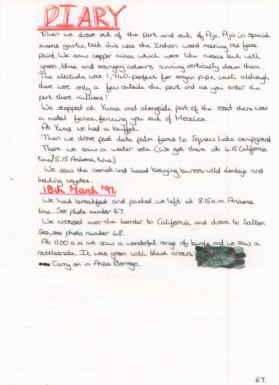 DIARY
Then we drove out of the park and out of Ajo. Ajo in Spanish
means garlic, but this was the Indian word meaning red face
paint. We saw copper mines which were like mesas but with
green, blue and orangey colours running vertically down them.
The altitude was 1,740. perfect for organ pipe cacti although
there were only a few outside the park and as you enter the
park there millions!
We stopped at Yuma and alongside part of the road there was
a metal fence, fencing you out of Mexico.
At Yuma we had a buffet.
Then we drove past date palm farms to Squaw Lake campground
There we saw a water vole (We got there at 4.15 California
time/5.15 Arizona time)
We saw the coments and heard braying burros wild donkeys and
howling coyotes.
18th March '97
We had breakfast and packed we left at 8.15 a.m. Arizona
time. See photo number 67.
We crossed over the border to California and drove to Salton
Sea, see photo number 68.
At 11.00 a.m we saw a wonderful range of birds and we saw a
rattlesnake. It was green with black arrows
Carry on in Anza Borrego.
67.